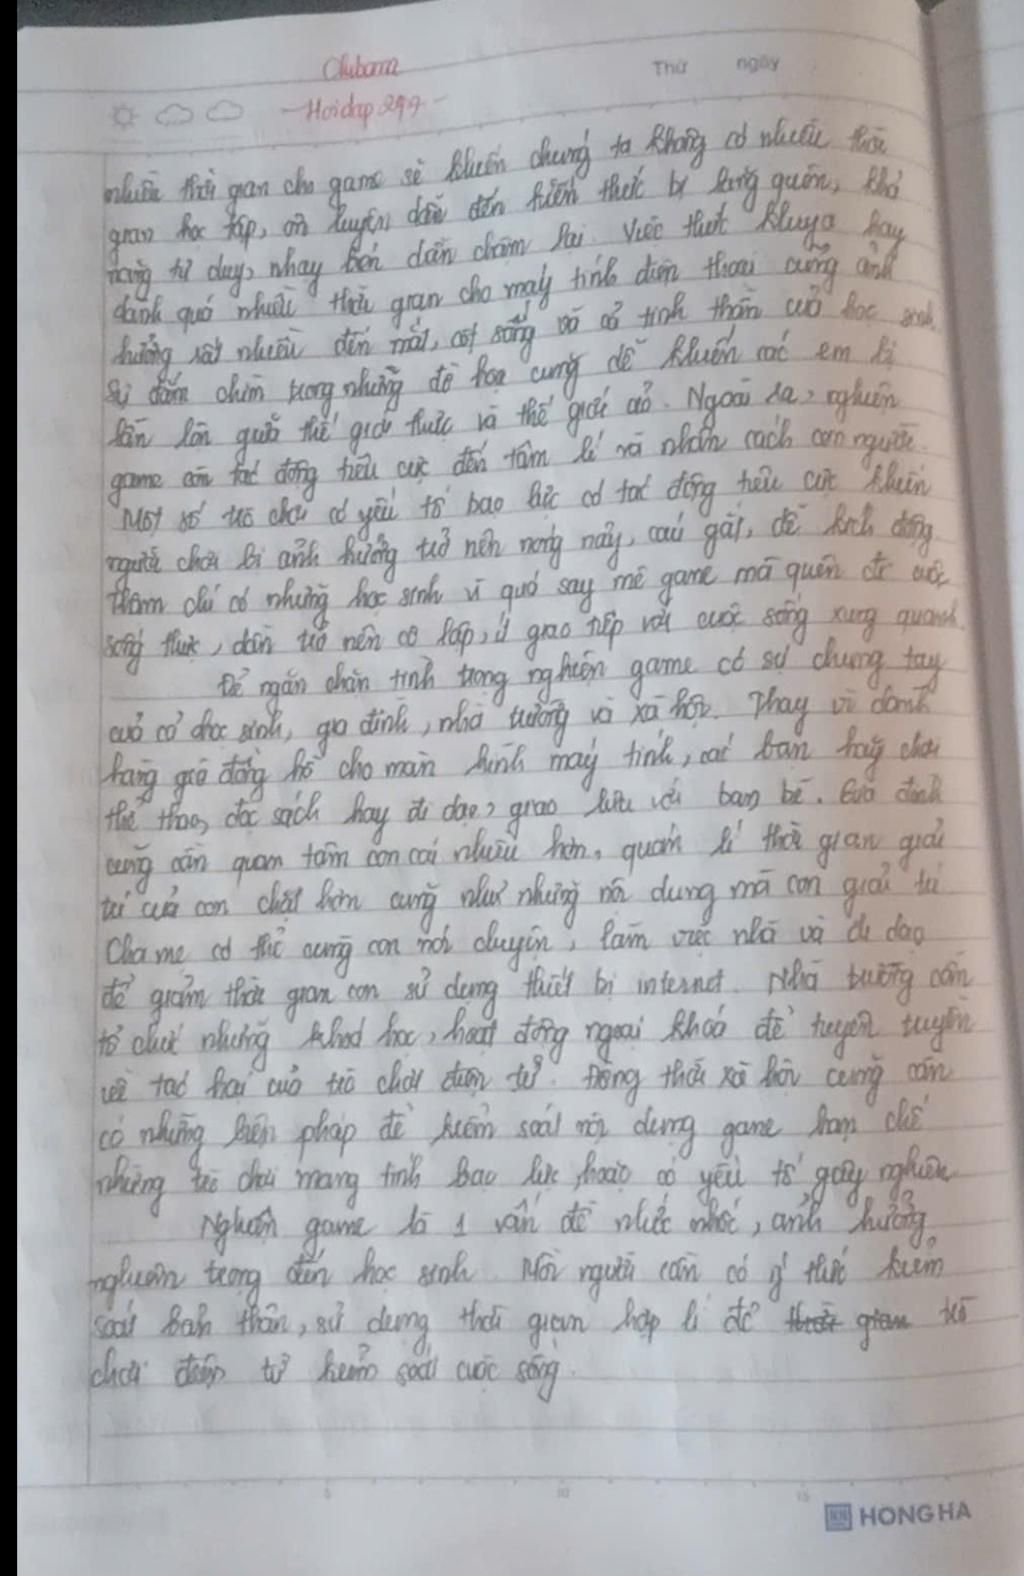 Clubama
Thứ ngày
- Hoidap247 -
nhiều thời gian cho game sẽ khiến chúng ta không có nhiều thời
gian học tập, ôn luyện dẫn đến kiến thức bị lãng quên, khả
năng tư duy, nhạy bén dần chậm lại. Việc thức khuya hay
dành quá nhiều thời gian cho máy tính điện thoại cũng ảnh
hưởng rất nhiều đến mắt, cột sống và cả tinh thần của học sinh
Sự đắm chìm trong những đồ họa cũng dễ khiến các em bị
lẫn lộn giữa thế giới thực và thế giới ảo. Ngoài ra, nghiện
game còn tác động tiêu cực đến tâm lí và nhân cách con người.
Một số trò chơi có yếu tố bạo lực có tác động tiêu cực khiến
người chơi bị ảnh hưởng trở nên nóng nảy, cáu gắt, dễ kích động
Thậm chí có những học sinh vì quá say mê game mà quên đi cuộc
sống thực, dần trở nên cô lập, ít giao tiếp với cuộc sống xung quanh.
Để ngăn chặn tình trạng nghiện game có sự chung tay
của cả học sinh, gia đình, nhà trường và xã hội. Thay vì dành
hàng giờ đồng hồ cho màn hình máy tính, các bạn hãy chơi
thể thao, đọc sách hay đi dạo, giao lưu với bạn bè. Gia đình
cũng cần quan tâm con cái nhiều hơn, quản lí thời gian giải
trí của con chặt hơn cũng như những nội dung mà con giải trí
Cha mẹ có thể cùng con nói chuyện, làm việc nhà và đi dạo
để giảm thời gian con sử dụng thiết bị internet. Nhà trường cần
tổ chức những khoá học, hoạt động ngoại khoá để tuyên truyền
về tác hại của trò chơi điện tử. Đồng thời xã hội cũng cần
có những biện pháp để kiểm soát nội dung game hạn chế
những trò chơi mang tính bạo lực hoặc có yếu tố gây nghiện
Nghiện game là 1 vấn đề nhức nhối, ảnh hưởng
nghiêm trọng đến học sinh. Mỗi người cần có ý thức kiểm
soát bản thân, sử dụng thời gian hợp lí để thời gian trò
chơi điện tử kiểm soát cuộc sống.
5 10 15
HONG HA